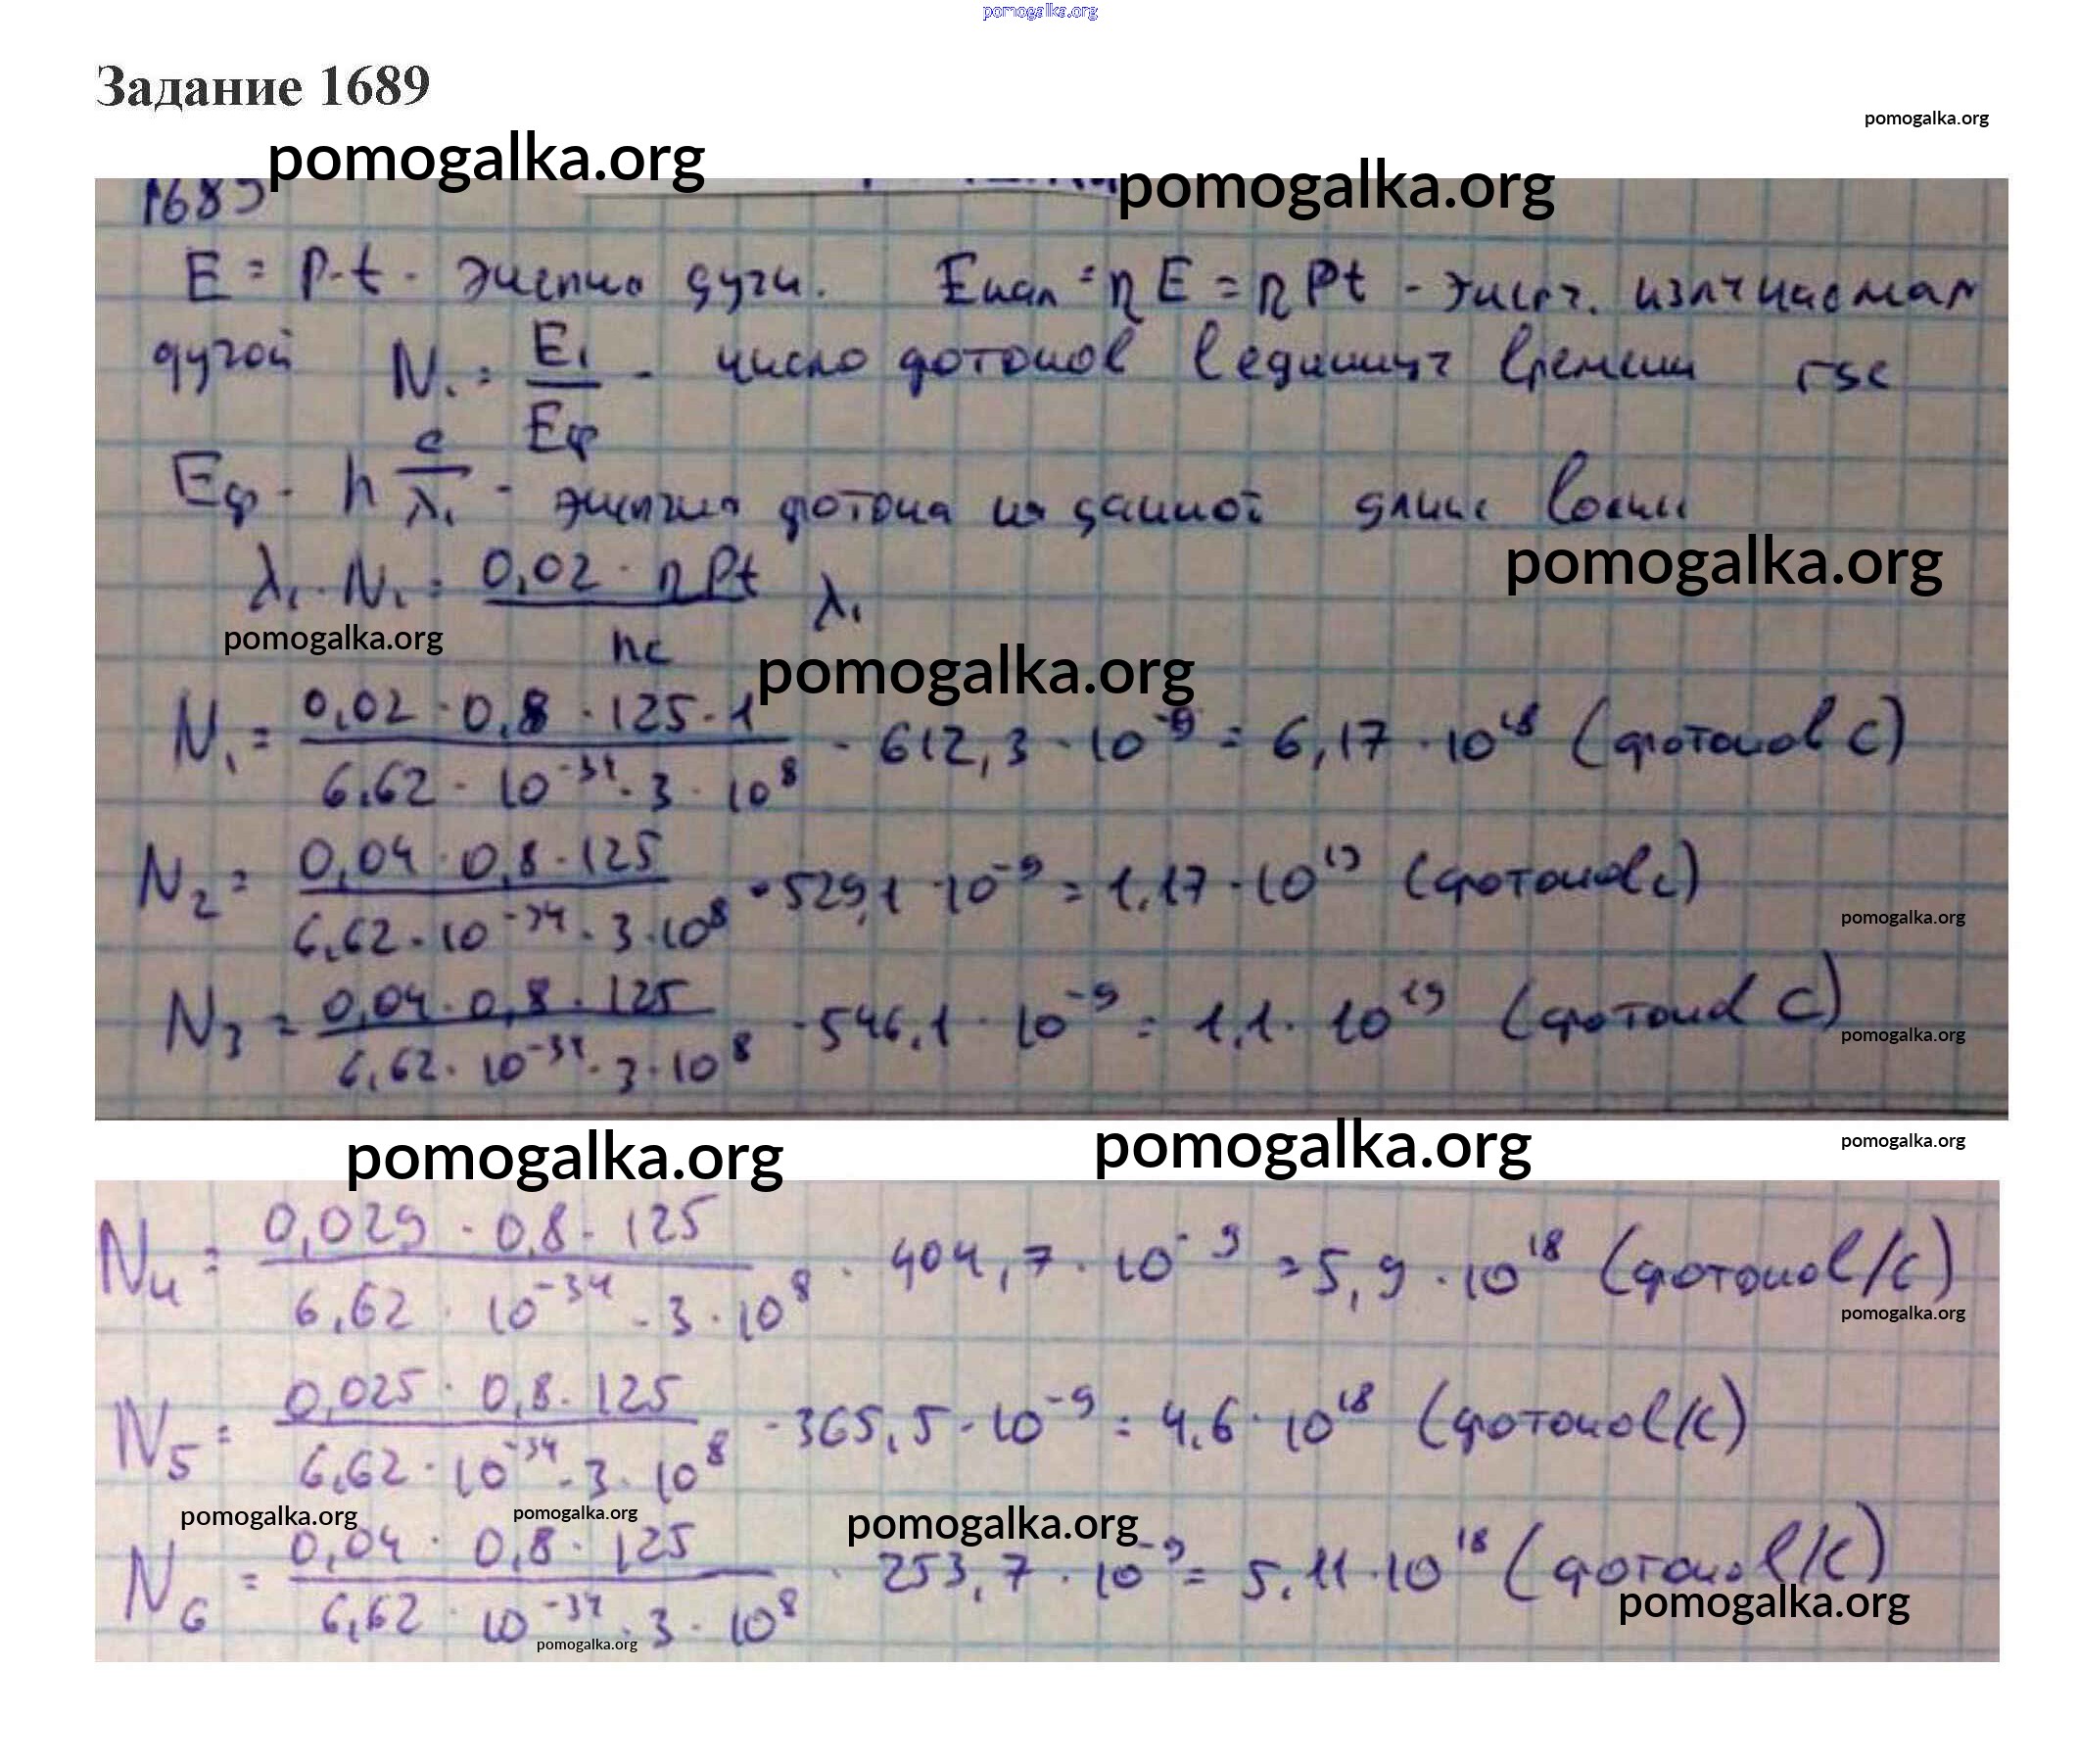 pomogalka.org
Задание 1689
pomogalka.org
pomogalka.org
pomogalka.org
1689
E = P·t - энергия дуги. Eизл = ηE = ηPt - энерг. излучаемая
дугой N₁ = E₁/Eф - число фотонов в единицу времени где
Eф - h c/λ₁ - энергия фотона на данной длине волны
pomogalka.org
λ₁ · N₁ = 0,02 · ηPt / hc λ₁
pomogalka.org
pomogalka.org
N₁ = 0,02 · 0,8 · 125 · 1 / 6,62 · 10⁻³⁴ · 3 · 10⁸ · 612,3 · 10⁻⁹ = 6,17 · 10¹⁸ (фотонов с)
N₂ = 0,04 · 0,8 · 125 / 6,62 · 10⁻³⁴ · 3 · 10⁸ · 529,1 · 10⁻⁹ = 1,17 · 10¹⁹ (фотонов с)
pomogalka.org
N₃ = 0,04 · 0,8 · 125 / 6,62 · 10⁻³⁴ · 3 · 10⁸ · 546,1 · 10⁻⁹ = 1,1 · 10¹⁹ (фотонов с)
pomogalka.org
pomogalka.org
pomogalka.org
pomogalka.org
N₄ = 0,029 · 0,8 · 125 / 6,62 · 10⁻³⁴ · 3 · 10⁸ · 404,7 · 10⁻⁹ = 5,9 · 10¹⁸ (фотонов/с)
pomogalka.org
N₅ = 0,025 · 0,8 · 125 / 6,62 · 10⁻³⁴ · 3 · 10⁸ · 365,5 · 10⁻⁹ = 4,6 · 10¹⁸ (фотонов/с)
pomogalka.org
pomogalka.org
pomogalka.org
N₆ = 0,04 · 0,8 · 125 / 6,62 · 10⁻³⁴ · 3 · 10⁸ · 253,7 · 10⁻⁹ = 5,11 · 10¹⁸ (фотонов/с)
pomogalka.org
pomogalka.org